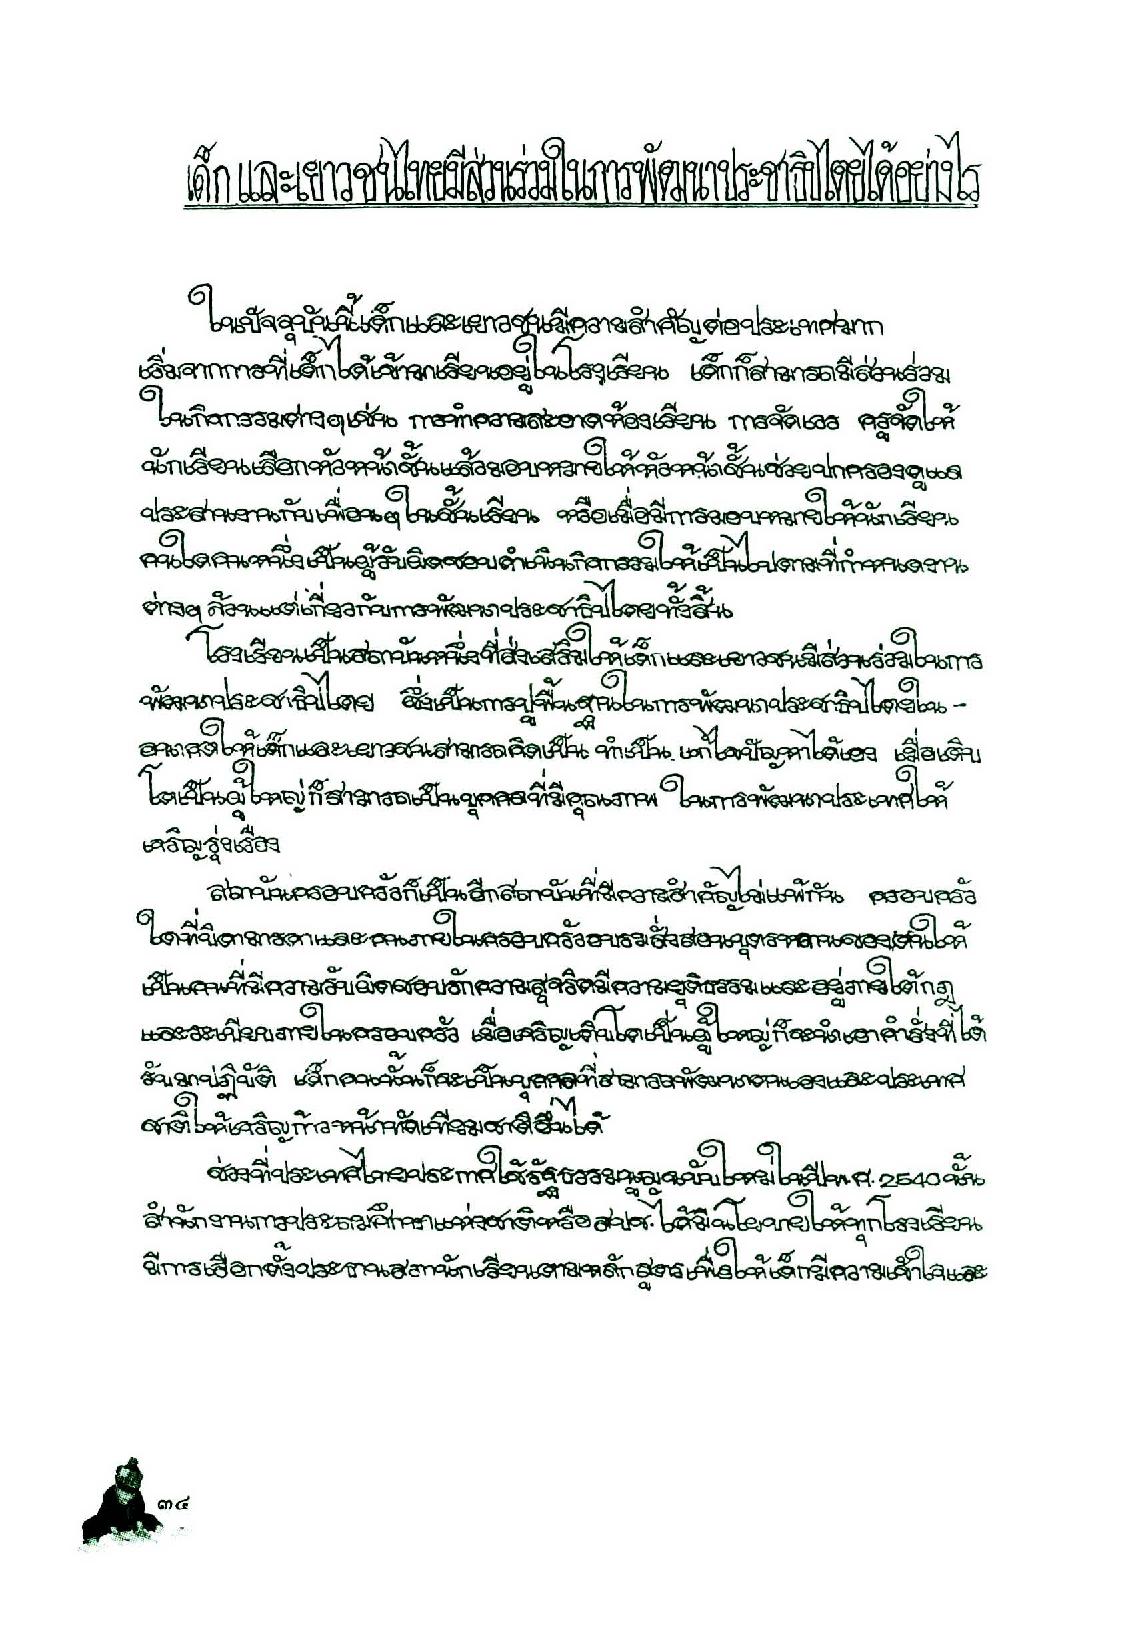 เด็กและเยาวชนไทยมีส่วนร่วมในการพัฒนาประชาธิปไตยได้อย่างไร
ในปัจจุบันนี้เด็กและเยาวชนมีความสำคัญต่อประเทศมาก
เริ่มจากการที่เด็กได้เข้ามาเรียนอยู่ในโรงเรียน เด็กก็สามารถมีส่วนร่วม
ในกิจกรรมต่างๆเช่น การทำความสะอาดห้องเรียน การจัดเวร ครูจัดให้
นักเรียนเลือกหัวหน้าชั้นแล้วมอบหมายให้หัวหน้าชั้นช่วยปกครองดูแล
ประสานงานกับเพื่อนๆในชั้นเรียน หรือเมื่อมีการมอบหมายให้นักเรียน
คนใดคนหนึ่งเป็นผู้รับผิดชอบดำเนินกิจกรรมให้เป็นไปตามที่กำหนดงาน
ต่างๆ ล้วนแต่เกี่ยวกับการพัฒนาประชาธิปไตยทั้งสิ้น
โรงเรียนเป็นสถาบันหนึ่งที่ส่งเสริมให้เด็กและเยาวชนมีส่วนร่วมในการ
พัฒนาประชาธิปไตย ซึ่งเป็นการปูพื้นฐานในการพัฒนาประชาธิปไตยใน-
อนาคตให้เด็กและเยาวชนสามารถคิดเป็น ทำเป็น แก้ไขปัญหาได้เอง เมื่อเติบ
โตเป็นผู้ใหญ่ก็สามารถเป็นบุคคลที่มีคุณภาพ ในการพัฒนาประเทศให้
เจริญรุ่งเรือง
สถาบันครอบครัวก็เป็นอีกสถาบันที่มีความสำคัญไม่แพ้กัน ครอบครัว
ใดที่บิดามารดาและคนภายในครอบครัวอบรมสั่งสอนบุตรหลานของตนให้
เป็นคนที่มีความรับผิดชอบรักความสุจริตมีความยุติธรรมและอยู่ภายใต้กฎ
และระเบียบภายในครอบครัว เมื่อเจริญเติบโตเป็นผู้ใหญ่ก็จะนำเอาคำสั่งที่ได้
รับมาปฏิบัติ เด็กคนนั้นก็จะเป็นบุคคลที่สามารถพัฒนาตนเองและประเทศ
ชาติให้เจริญก้าวหน้าทัดเทียมชาติอื่นได้
ช่วงที่ประเทศไทยประกาศใช้รัฐธรรมนูญฉบับใหม่ในปีพ.ศ.2540 นั้น
สำนักงานการประถมศึกษาแห่งชาติหรือ สปช.ได้มีนโยบายให้ทุกโรงเรียน
มีการเลือกตั้งประธานสภานักเรียนตามหลักสูตรเพื่อให้เด็กมีความเข้าใจและ
๓๔